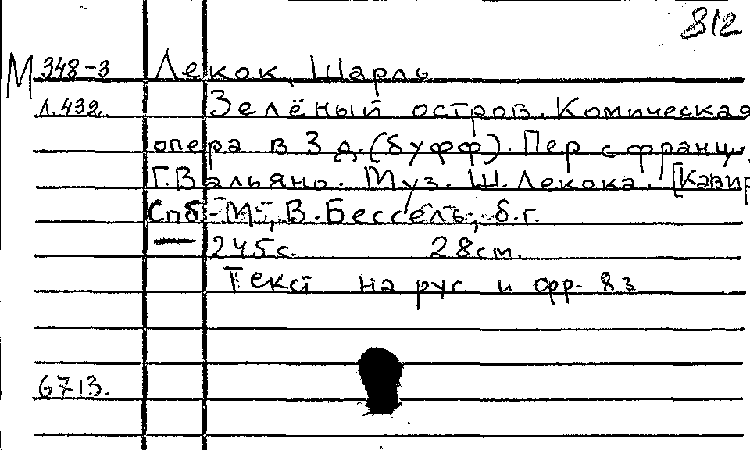 812
М 348-3 Лекок, Шарль
л.432. Зелёный остров. Комическая
опера в 3 д. (буфф). Пер с франц.
Г. Вальяно. Муз. Ш. Лекока. [Клавир
Спб-М, В. Бессель, б.г.
245с. 28см.
Текст на рус и фр. яз
6713.